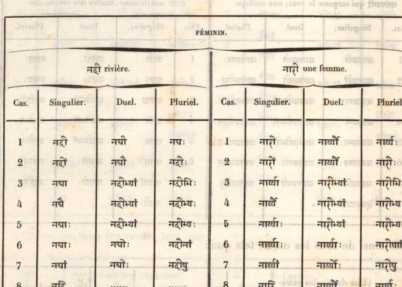 FÉMININ.
नदी rivière. नारी une femme.
Cas. Singulier. Duel. Pluriel. Cas. Singulier. Duel. Pluriel.
1 नदी नद्यौ नद्यः 1 नारी नार्य्यौ नार्य्यः
2 नदीं नद्यौ नदीः 2 नारीं नार्य्यौ नारीः
3 नद्या नदीभ्यां नदीभिः 3 नार्य्या नारीभ्यां नारीभिः
4 नद्यै नदीभ्यां नदीभ्यः 4 नार्य्यै नारीभ्यां नारीभ्यः
5 नद्याः नदीभ्यां नदीभ्यः 5 नार्य्याः नारीभ्यां नारीभ्यः
6 नद्याः नद्योः नदीनां 6 नार्य्याः नार्य्योः
7 नद्यां नद्योः नदीषु 7 नार्य्यां नार्य्योः नारीषु
8 8